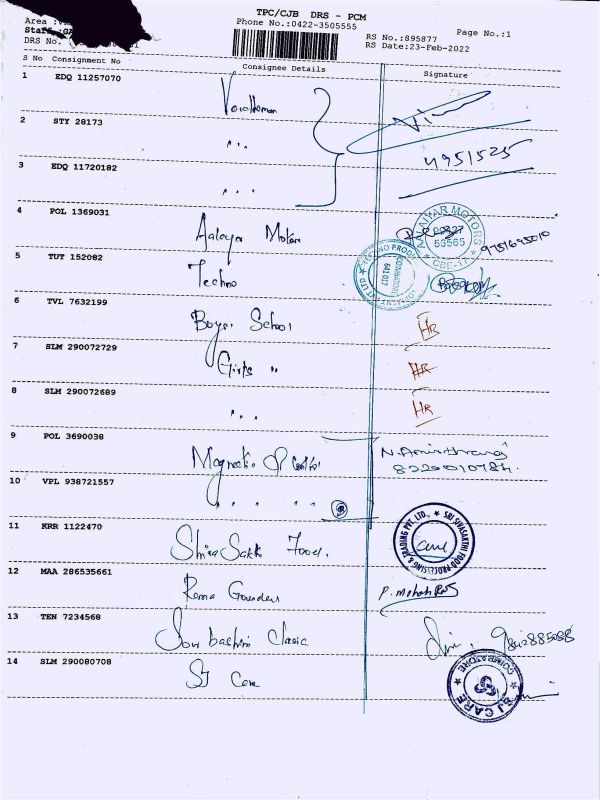 TPC/CJB DRS - PCM
Area :
Phone No.:0422-3505555
Page No.:1
Staff :GA
RS No.:895877
DRS No.
RS Date:23-Feb-2022
S No Consignment No Consignee Details Signature
1 EDQ 11257070
2 STY 28173 " 4951525
3 EDQ 11720182 "
4 POL 1369031 Aalayar Motor 9751695010
ANNAIYAR MOTORS 56565 CBE-17
5 TUT 152082 Techno
TECHNO PRODUCTS PVT LTD COIMBATORE 641 017
6 TVL 7632199 Boys. School HR
7 SLM 290072729 Girls " HR
8 SLM 290072689 " HR
9 POL 3690038 Magnetic
8220010784.
10 VPL 938721557 " " "
11 KRR 1122470 Shiva Sakthi Food.
SRI SIVASAKTHI FOOD PROCESSING & TRADING PVT. LTD.,
12 MAA 286535661 Rema Gounder P. Mohan
13 TEN 7234568 Clasic 9842885088
14 SLM 290080708 SJ Care
SJ CARE COIMBATORE